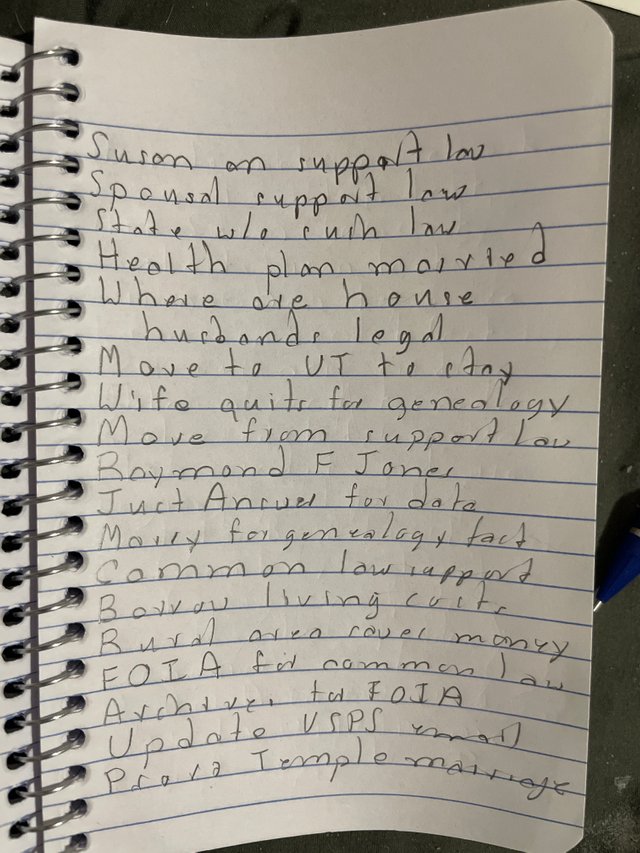 Susan on support law
Spousal support law
State w/o such law
Health plan married
Where are house
husbands legal
Move to UT to stay
Wife quits for genealogy
Move from support law
Raymond F Jones
Just Answer for data
Marry for genealogy fact
Common law support
Borrow living costs
Rural area saves money
FOIA for common law
Archives for FOIA
Update USPS email
Prove Temple marriage